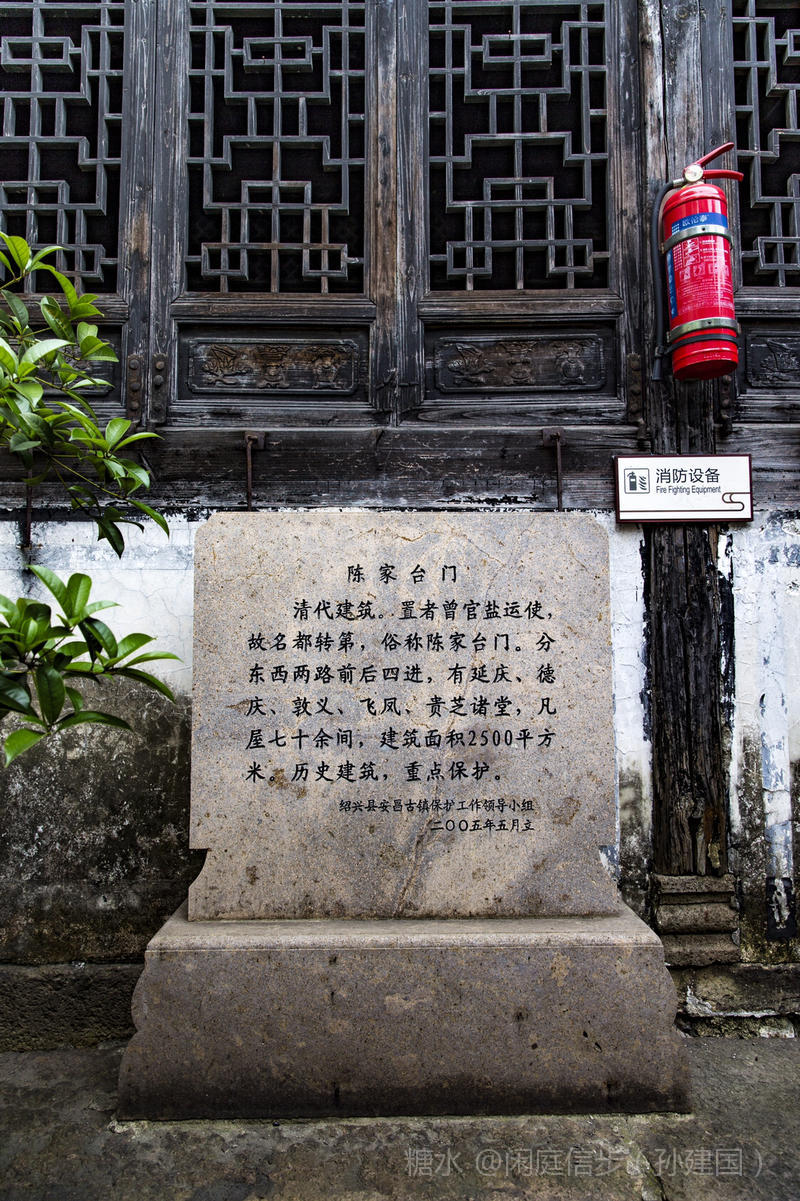 欧伦泰
消防设备
Fire Fighting Equipment
陈家台门
清代建筑。置者曾官盐运使，
故名都转第，俗称陈家台门。分
东西两路前后四进，有延庆、德
庆、敦义、飞凤、贵芝诸堂，凡
屋七十余间，建筑面积2500平方
米。历史建筑，重点保护。
绍兴县安昌古镇保护工作领导小组
二〇〇五年五月立
糖水 @闲庭信步（孙建国）